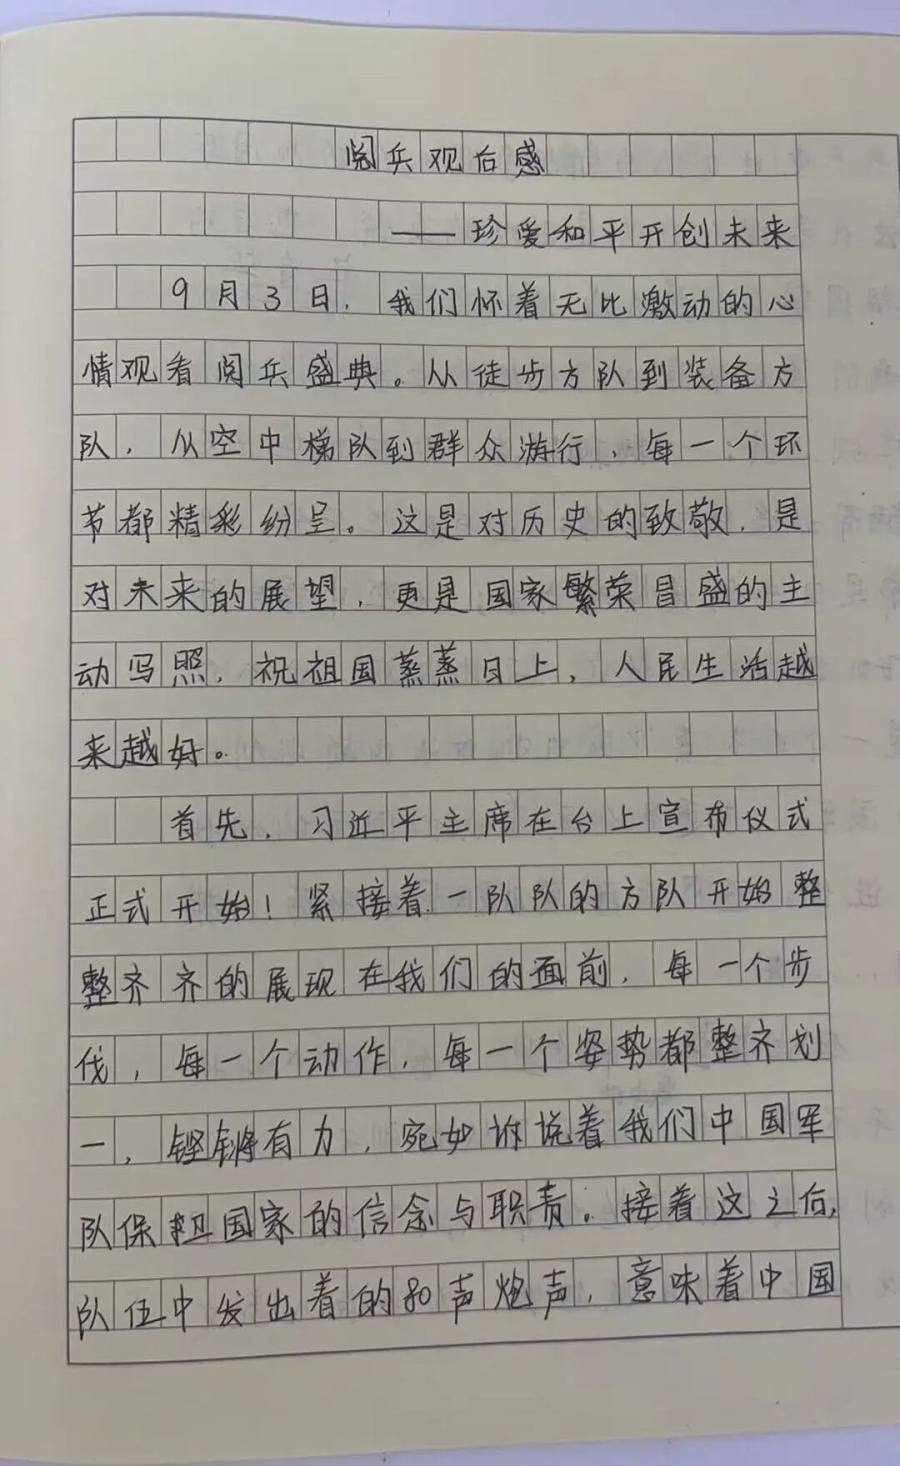 阅兵观后感
——珍爱和平开创未来
9月3日，我们怀着无比激动的心
情观看阅兵盛典。从徒步方队到装备方
队，从空中梯队到群众游行，每一个环
节都精彩纷呈。这是对历史的致敬，是
对未来的展望，更是国家繁荣昌盛的主
动写照，祝祖国蒸蒸日上，人民生活越
来越好。
首先，习近平主席在台上宣布仪式
正式开始！紧接着一队队的方队开始整
整齐齐的展现在我们的面前，每一个步
伐，每一个动作，每一个姿势都整齐划
一，铿锵有力，宛如诉说着我们中国军
队保担国家的信念与职责。接着这之后，
队伍中发出着的80声炮声，意味着中国